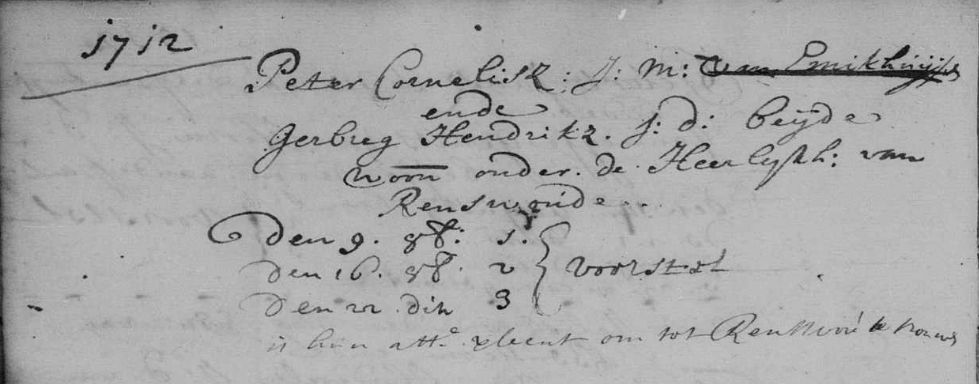 1712
Peter Cornelisz: J: M: van Emikhuijse
ende
Gerbreg Hendrikz. j: d: beijde
woon onder. de Heerlykh: van
Renswoude..
den 9. 1.
den 16. 2 voorstel
den 22 dito 3
is hun att. verleent om tot Renswou te trouwen